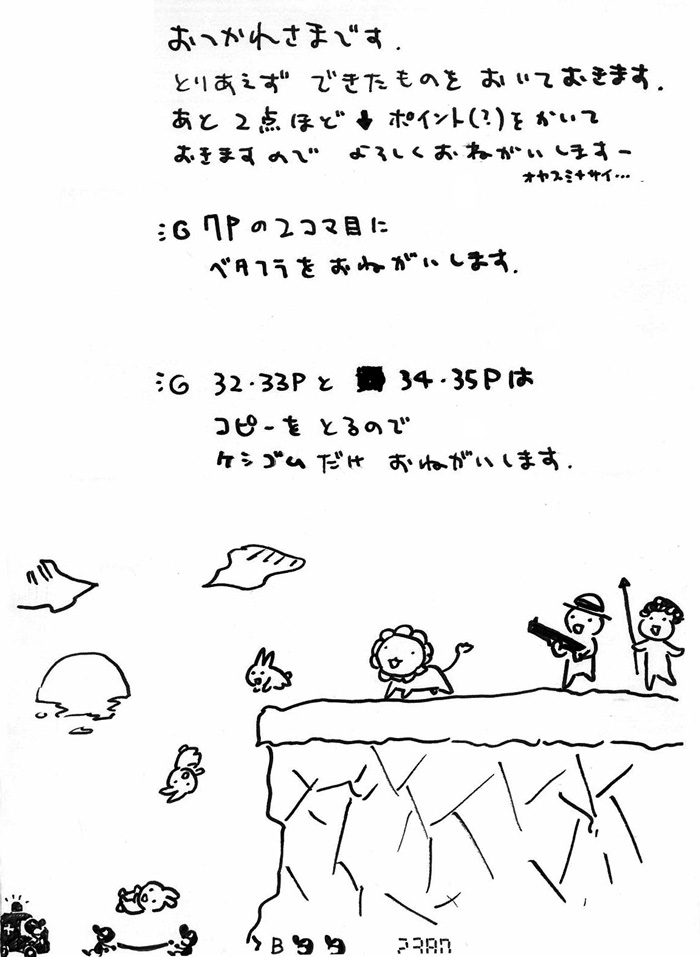 おつかれさまです.
とりあえず できたものを おいておきます.
あと 2点ほど ↓ ポイント(?)をかいて
おきますので よろしくおねがいしますー
オヤスミナサイ….
ミG 7Pの2コマ目に
ベタフラをおねがいします.
ミG 32・33Pと 34・35Pは
コピーを とるので
ケシゴムだけ おねがいします.
B